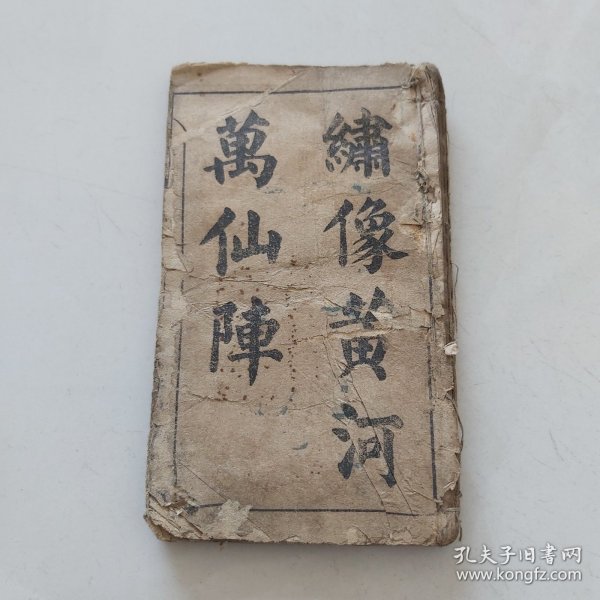 繡像黃河
萬仙陣
孔夫子旧书网
www.kongfz.com